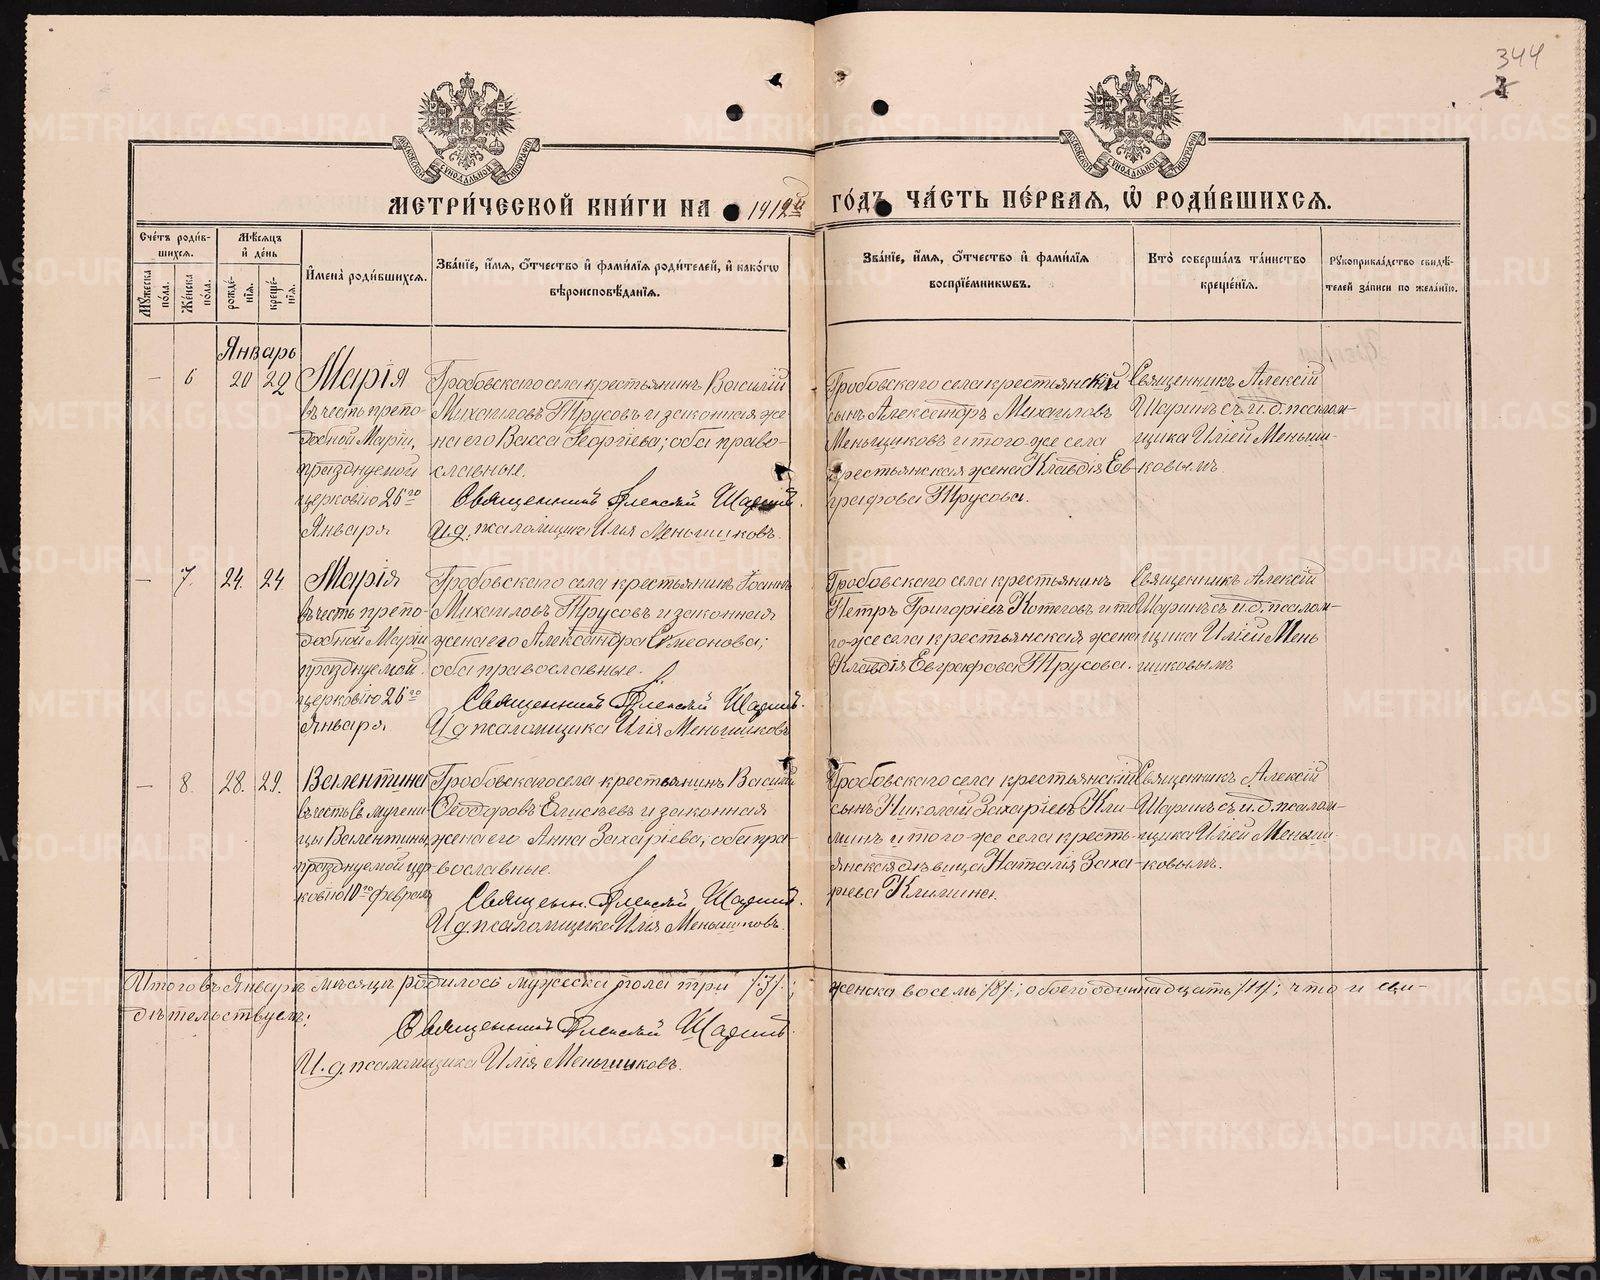 344
МОСКОВСКОЙ СѴНОДАЛЬНОЙ ТИПОГРАФІИ
МОСКОВСКОЙ СѴНОДАЛЬНОЙ ТИПОГРАФІИ
МЕТРИ́ЧЕСКОЙ КНИ́ГИ НА 1912й ГО́ДЪ ЧА́СТЬ ПЕ́РВАѦ, Ѡ РОДИ́ВШИХСѦ.
Сче́тъ роди́вшихсѧ.
Мꙋжеска по́ла.
Же́нска по́ла.
Мѣ́сѧцъ и҆ де́нь
рожде́нїѧ.
креще́нїѧ.
И҆мена̀ роди́вшихсѧ.
Зва́нїе, и҆́мѧ, ѻ҆́тчество и҆ фами́лїѧ роди́телей, и҆ како́гѡ вѣроисповѣ́данїѧ.
Зва́нїе, и҆́мѧ, ѻ҆́тчество и҆ фами́лїѧ воспрїе́мникѡвъ.
Кто̀ соверша́лъ та́инство креще́нїѧ.
Рꙋкоприкла́дство свидѣ́телей за́писи по жела́нїю.
Январь
— 6 20 22
Марія
въ честь препо-
добной Маріи,
празднуемой
церковію 26го
Января
Гробовскаго села крестьянинъ Василій
Михаиловъ Трусовъ и законная же-
на его Васса Георгіева; оба право-
славные.
Священникъ Алексѣй Шаринъ.
И.д. псаломщика Илія Меньшиковъ.
Гробовскаго села крестьянскій
сынъ Александръ Михаиловъ
Меньщиковъ и того-же села
крестьянская жена Клавдія Ев-
графова Трусова.
Священникъ Алексій
Шаринъ съ и.д. псалом-
щика Иліей Меньши-
ковымъ.
— 7. 24. 24
Марія
въ честь препо-
добной Маріи
празднуемой
церковію 26го
Января
Гробовскаго села крестьянинъ Іоаннъ
Михаиловъ Трусовъ и законная
жена его Александра Симеонова;
оба православные.
Священникъ Алексѣй Шаринъ.
И д псаломщика Илія Меньшиковъ
Гробовскаго села крестьянинъ
Петръ Григоріевъ Котеговъ и то-
го-же села крестьянская жена
Клавдія Евграфова Трусова.
Священникъ Алексій
Шаринъ съ и.д. псалом-
щика Иліей Мень
шиковымъ
— 8. 28. 29.
Валентина
въ честь Св. мучени
цы Валентины,
празднуемой цер
ковію 10го февраля
Гробовскаго села крестьянинъ Василій
Ѳеодоровъ Елисѣевъ и законная
жена его Анна Захаріева; оба пра-
вославные.
Священ. Алексѣй Шаринъ.
И д. псаломщика Илія Меньшиковъ.
Гробовскаго села крестьянскій
сынъ Николай Захаріевъ Кли-
минъ и того-же села кресть-
янская дѣвица Наталія Заха-
ріева Климина.
Священникъ Алексій
Шаринъ съ и.д. псалом-
щика Иліей Меньши-
ковымъ.
Итого въ Январѣ мѣсяцѣ родилось мужеска пола три /3/; женска восемь /8/; обоего одиннадцать /11/; что и сви-
дѣтельствуемъ:
Священникъ Алексѣй Шаринъ.
И.д. псаломщика Илія Меньшиковъ.
METRIKI.GASO-URAL.RU